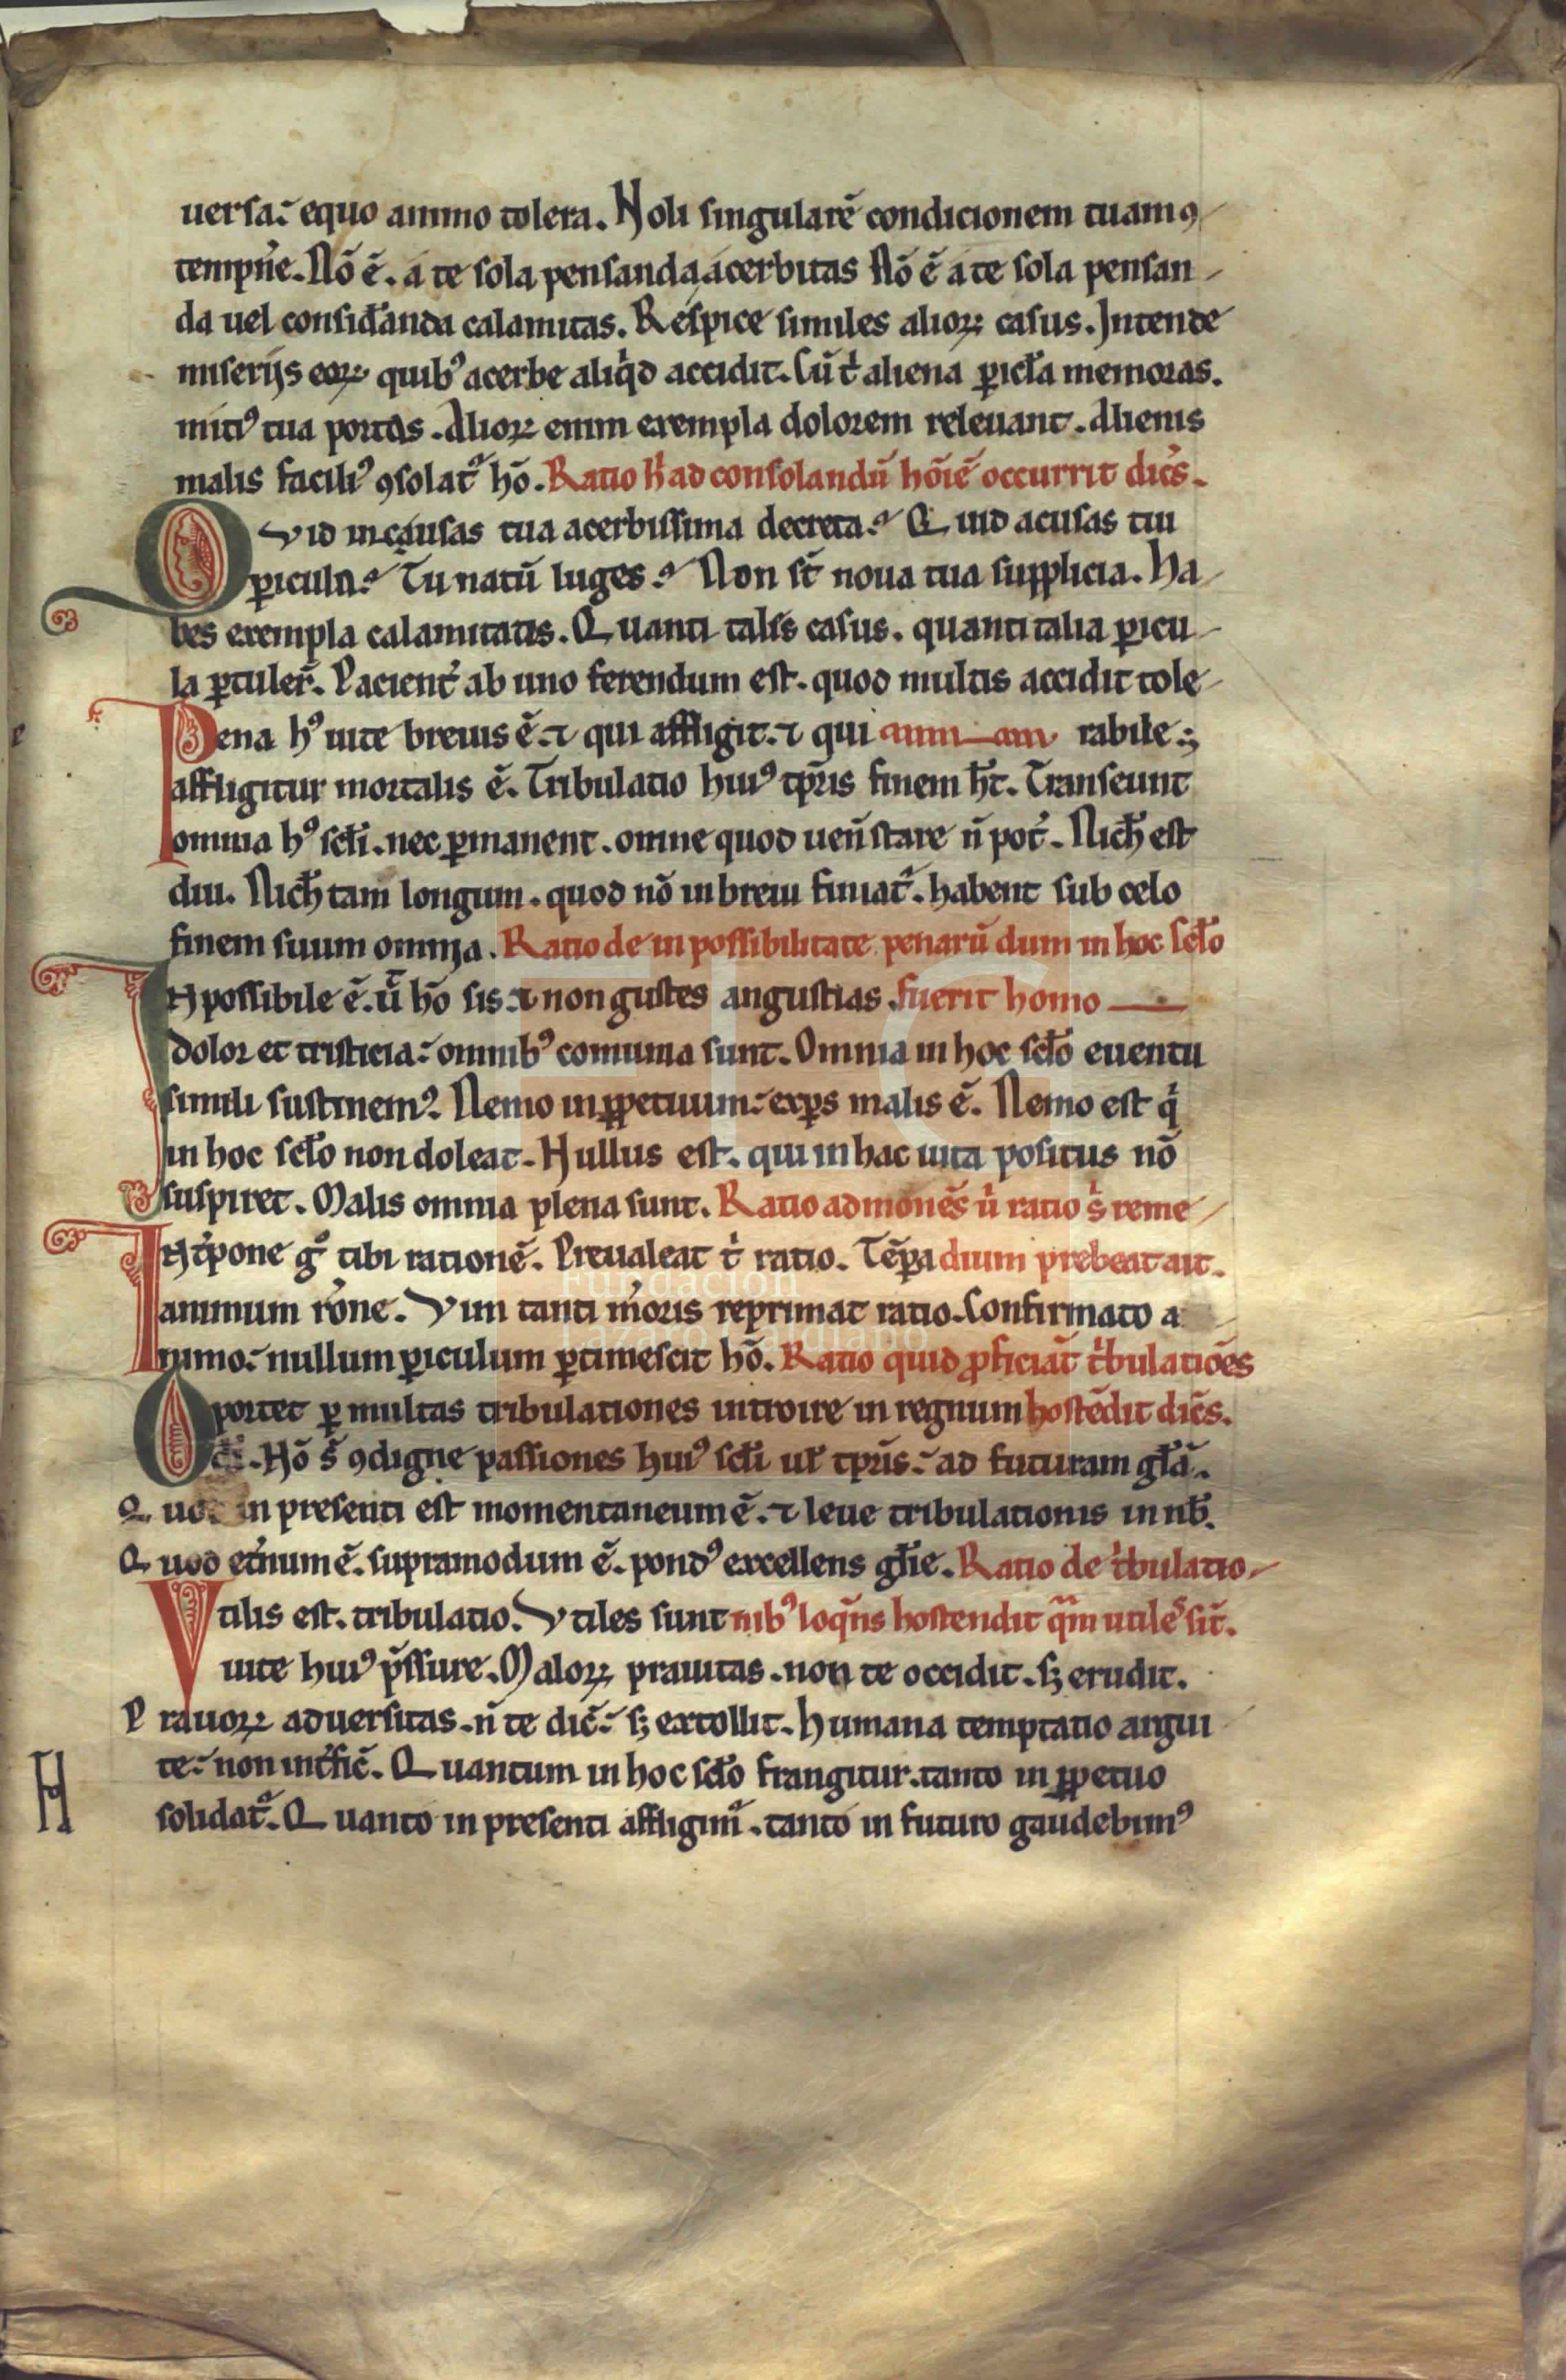 uersa: equo animo tolera. Noli singularē condicionem tuam ꝯ
tempn̄e. Nō ē. a te sola pensanda acerbitas Nō ē a te sola pensan
da uel consid̄anda calamitas. Respice similes alioꝝ casus. Intende
miserijs eoꝝ quibꝰ acerbe aliq̇d accidit. Cū t̄ aliena ꝑicl̄a memoras.
mitiꝰ tua portas. Alioꝝ enim exempla dolorem releuant. Alienis
malis faciliꝰ ꝯsolat᷑ hō. Ratio h̄ ad consolandū hōiē occurrit dic̄s.
Qvid incausas tua acerbissima decreta? Quid acusas tui
ꝑicula? Tu natū luges? Non st̄ noua tua supplicia. Ha
bes exempla calamitatis. Quanti talis casus. quanti talia ꝑicu
la ꝑtuler̄. Pacient̄ ab uno ferendum est. quod multis accidit tole
Pena hꝰ uite breuis ē. ⁊ qui affligit. ⁊ qui rabile.
affligitur mortalis ē. Tribulatio huiꝰ tp̄ris finem h̄t. Transeunt
omnia hꝰ scl̄i. nec ꝑmanent. omne quod uen̄ stare n̄ pot̄. Nich̄ est
diu. Nich̄ tam longum. quod nō in breui finiat᷑. habent sub celo
finem suum omnia. Ratio de inpossibilitate penarū dum in hoc scl̄o
INpossibile ē. ū hō sis ⁊ non gustes angustias. fuerit homo
dolor et tristicia: omnibꝰ comunia sunt. Omnia in hoc scl̄o euentu
simili sustinemꝰ. Nemo in ꝑpetuum: exꝑs malis ē. Nemo est q̇
in hoc scl̄o non doleat. Nullus est. qui in hac uita positus nō
suspiret. Malis omnia plena sunt. Ratio admonēs ū ratio s̄ reme
INt̄pone g̊ tibi rationē. Preualeat t̄ ratio. Tēꝑa dium prebeat ait.
animum rōne. Vim tanti m̄oris reprimat ratio. Confirmato a
nimo: nullum ꝑiculum ꝑtimescit hō. Ratio quid ꝓficiāt t̄bulatiōes
Oportet ꝑ multas tribulationes introire in regnum hostēdit dic̄s.
dī. Nō s̄ ꝯdigne passiones huiꝰ scl̄i ul̄ tp̄ris: ad futuram gl̄ā.
Quod in presenti est momentaneum ē. ⁊ leue tribulationis in nb̄.
Quod et̄num ē. supramodum ē. pondꝰ excellens gl̄ie. Ratio de t̄bulatio
Vtilis est. tribulatio. Vtiles sunt nibꝰ loq̄ns hostendit qm̄ utilēs sit̄.
uite huiꝰ p̄ssure. Maloꝝ prauitas. non te occidit. sꝫ erudit.
Prauoꝝ aduersitas. n̄ te dic̄: sꝫ extollit. humana temptatio argui
te: non int̄fic̄. Quantum in hoc scl̄o frangitur. tanto in ꝑpetuo
solidat᷑. Quanto in presenti affligim᷑. tanto in futuro gaudebimꝰ
H
Fundación
Lázaro Galdiano